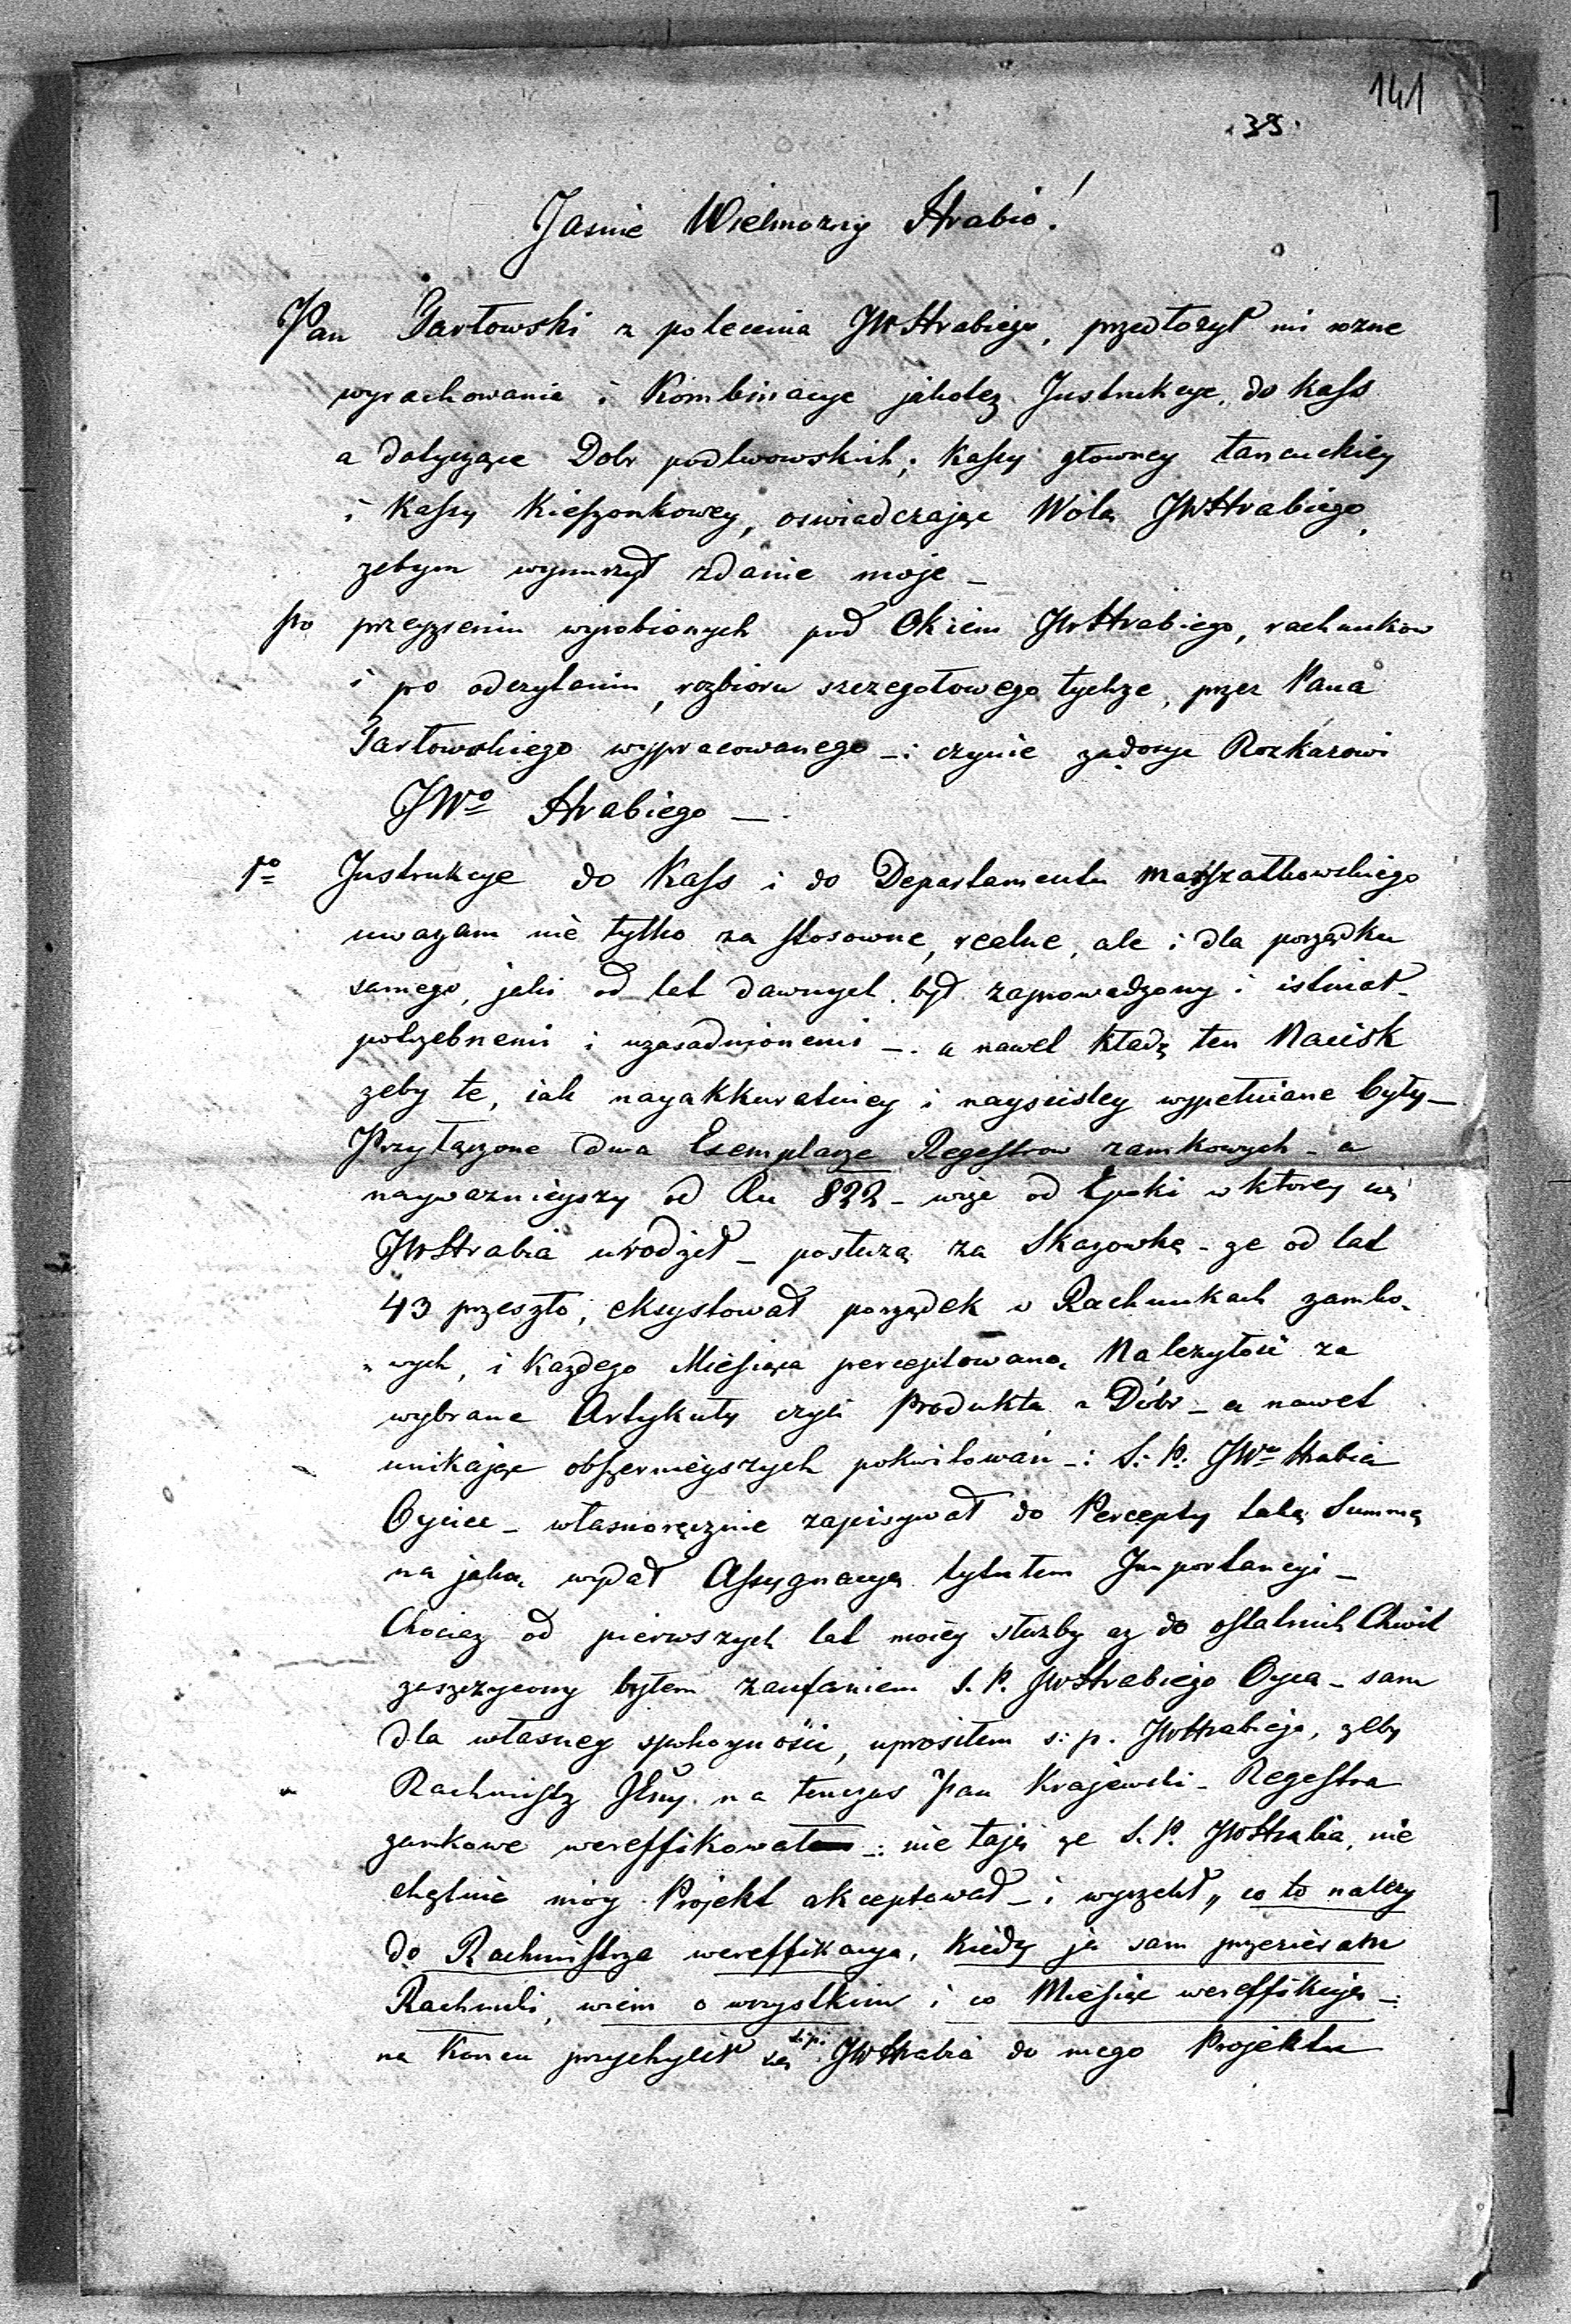 141
.39.
Jasnie Wielmozny Hrabio!
Pan Gartowski z polecenia JWHrabiego, przedłozył mi rozne
wyrachowania i Kombinacye jakotez Instrukcye, do kass
a dotyczące Dobr podlwowskich, Kassy głowney łancuckiey
i Kassy Kieszonkowey, oswiadczając Wolą JWHrabiego,
zebym wynurzył zdanie moje _
Po przeyzreniu wyrobionych pod Okiem JWHrabiego, rachunkow
i po odczytaniu, rozbioru szczegołowego tychze, przez Pana
Gartowskiego wypracowanego _ i czynie zadosyc Rozkazowi
JWo Hrabiego _ .
1o Instrukcye do Kass i do Departamentu marszałkowskiego
uwazam nie tylko za stosowne, realne, ale i dla porządku
samego, jaki od lat dawnych był zaprowadzony i istniał _
potrzebnemi i uzasadnionemi _ . a nawet kładę ten Nacisk
zeby te, iak nayakkuratniey i nayscisley wypełniane były _
Przyłączone dwa Exemplarze Regestrow zamkowych _ a
naywaznieyszy od Ru 822 _ więc od Epoki w ktorey się
JWHrabia urodził _ posłuzą za Skazowkę _ ze od lat
43 przeszło, eksystował porządek w Rachunkach zamko-
-wych, i Kazdego Miesiąca perceptowano Nalezytość za
wybrane Artykuły czyli Produkta z Dóbr _ a nawet
unikając obszernieyszych pokwitowań _ : S. P. JWo Hrabia
Oyciec _ własnoręcznie zapisywał do Percepty taką Summę
na jaką wydał Assygnacyą tytułem Importancyi _
Chociaz od pierwszych lat moiey słuzby az do ostatnich Chwil
zaszczycony byłem zaufaniem S. P. JWHrabiego Oyca _ sam
dla własney spokoyności, uprosiłem s. p. JWHrabiego, zeby
Rachmistz Jlny. na tenczas Pan Krajewski _ Regestra
zamkowe wereffikował _ : nie taję ze S. P. JWHrabia, nie
chętnie móy Projekt akceptował _ i wyrzekł „ co to nalezy
do Rachmistrza wereffikacya, kiedy ja sam przezieram
Rachunki, wiem o wszystkim i co Miesiąc wereffikuję _ :
na koncu przychylił się s. p. JWHrabia do mego Projektu